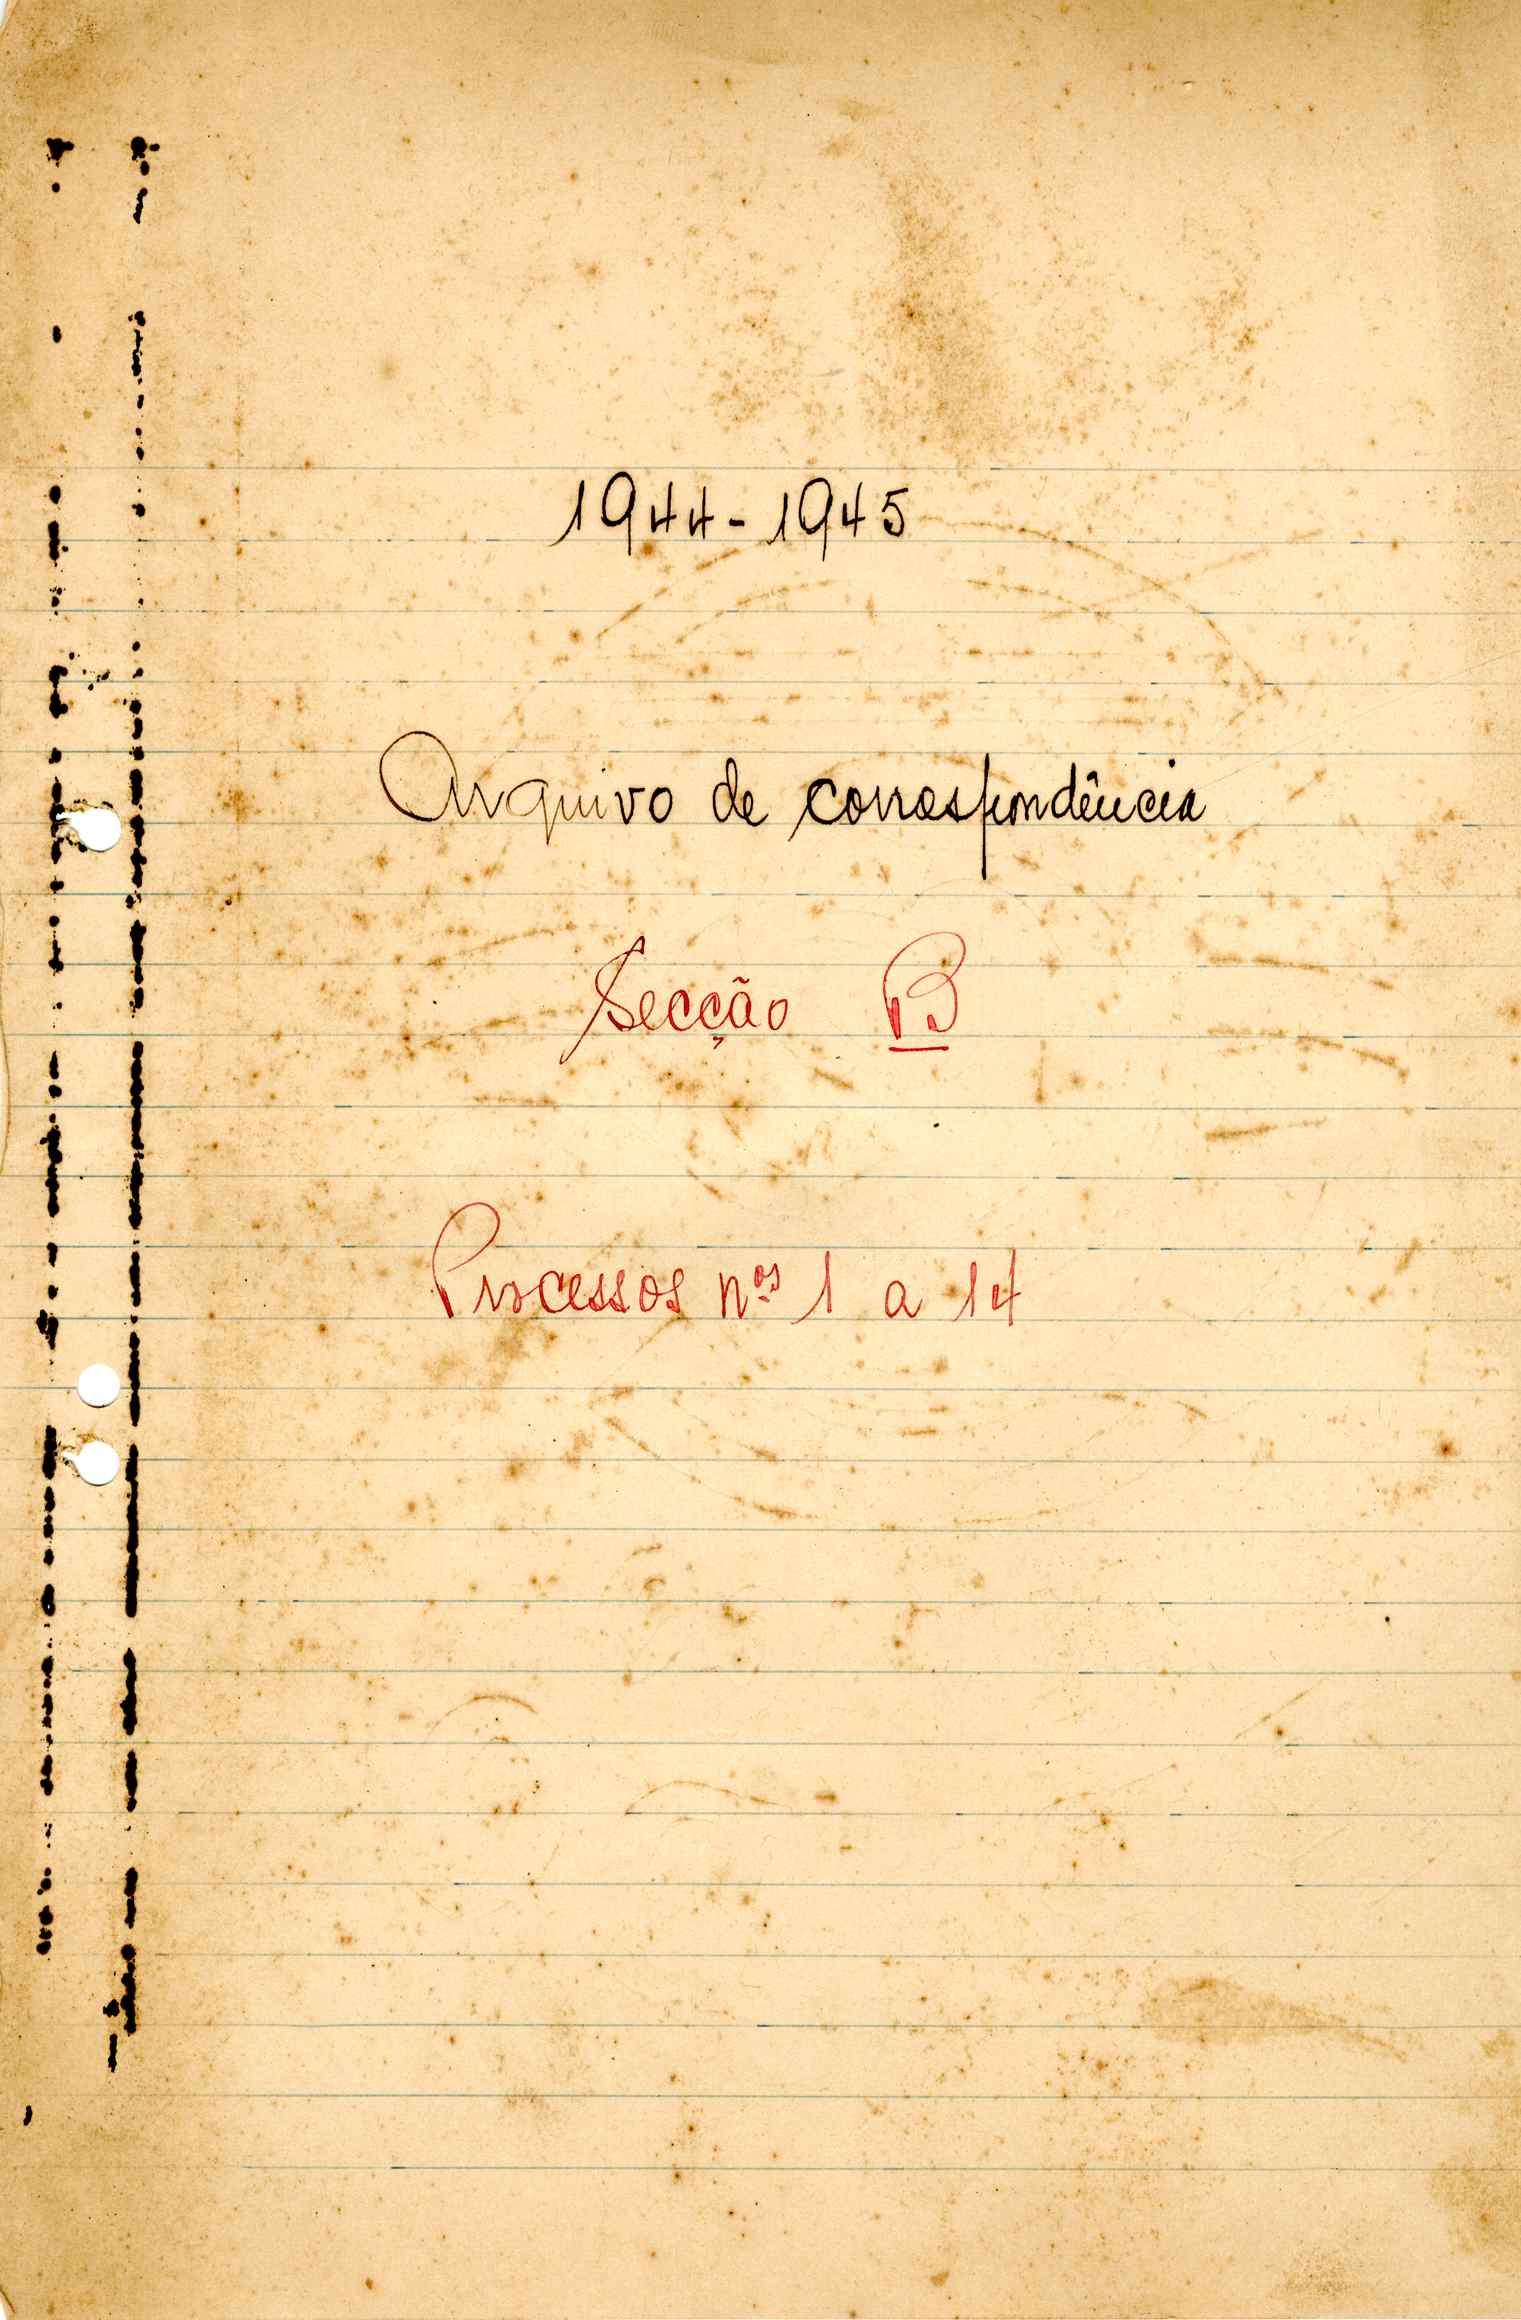 1944-1945
Arquivo de correspondência
Secção B
Processos nos 1 a 14